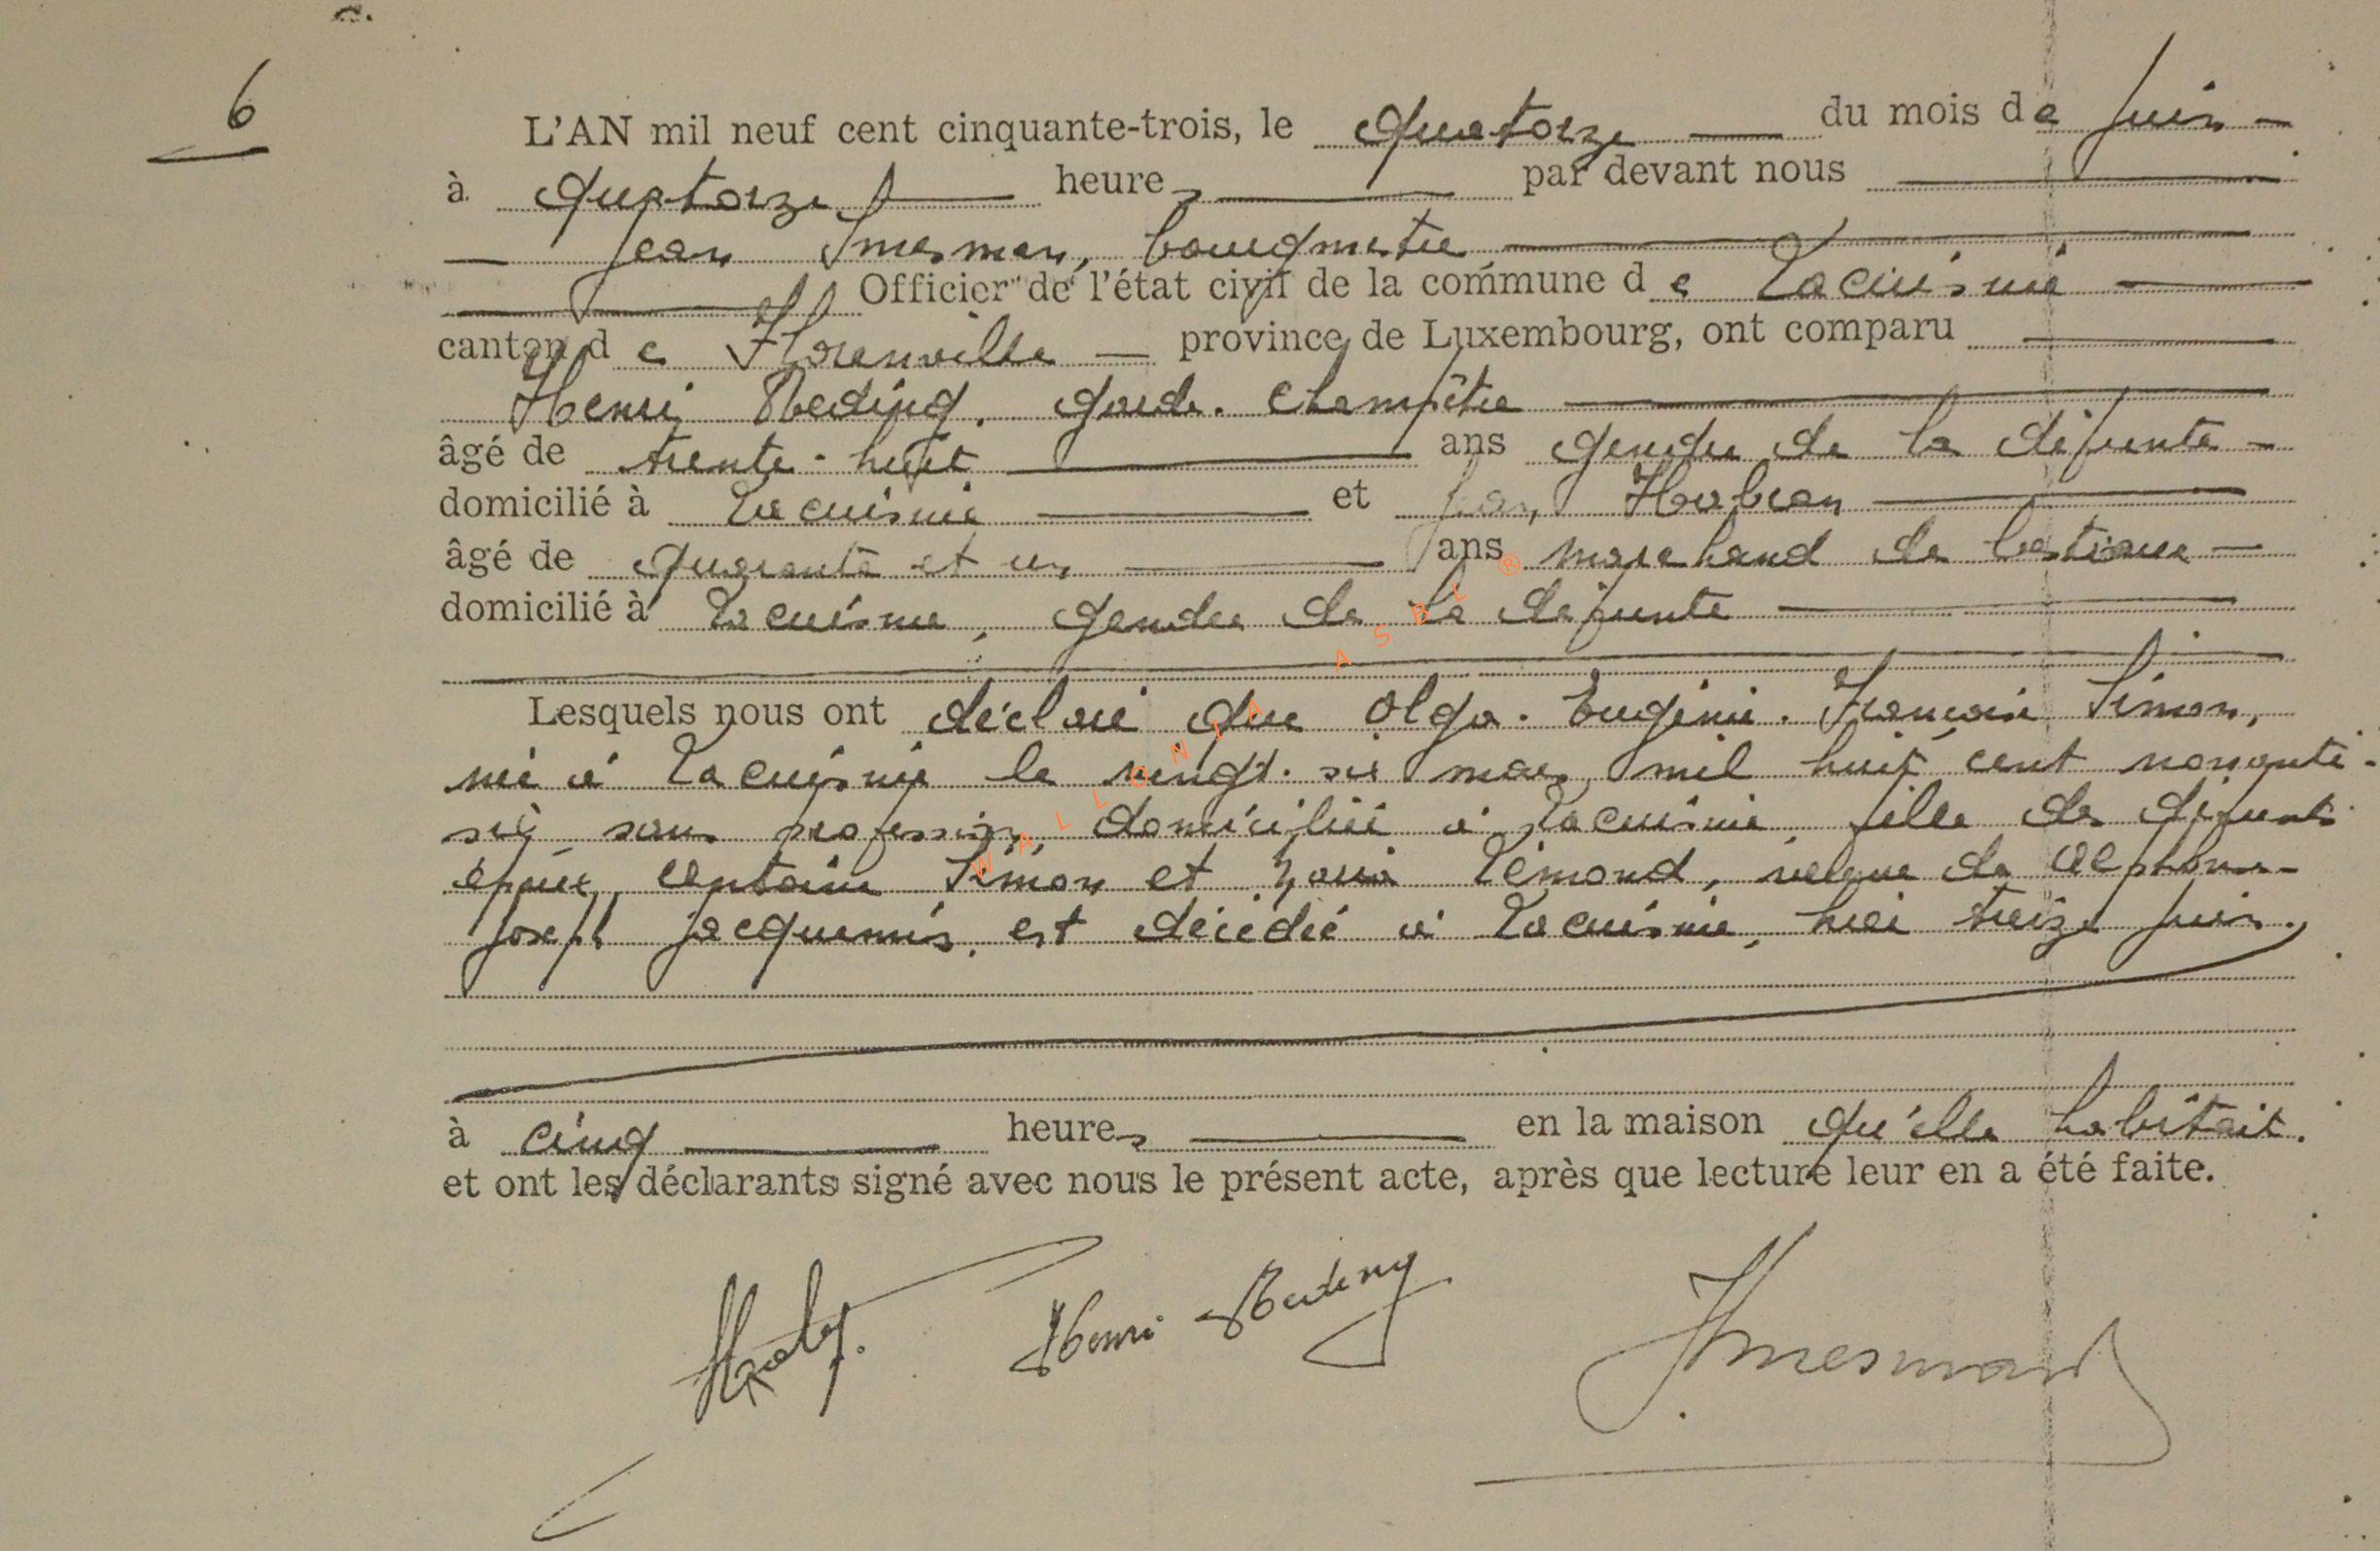 6
L'AN mil neuf cent cinquante-trois, le quatorze du mois de Juin
à quatorze heures par devant nous
Jean Smesman, bourgmestre
Officier de l'état civil de la commune de Lacuisine
canton de Florenville province de Luxembourg, ont comparu
Henri Reding, garde-champêtre
âgé de trente-huit ans gendre de la défunte
domicilié à Lacuisine et Jean Habran
âgé de quarante et un ans marchand de bestiaux
domicilié à Lacuisine, gendre de la défunte
Lesquels nous ont déclaré que Olga-Eugénie-Françoise Simon,
née à Lacuisine le vingt-six mai mil huit cent nonante-
six, sans profession, domiciliée à Lacuisine, fille des défunts
époux Simon et Lémond, veuve de Alphonse-
Joseph Jacquemin, est décédée à Lacuisine, hier treize juin.
à cinq heures en la maison qu'elle habitait.
et ont les déclarants signé avec nous le présent acte, après que lecture leur en a été faite.
Henri Reding
WALLONIA ASBL ®